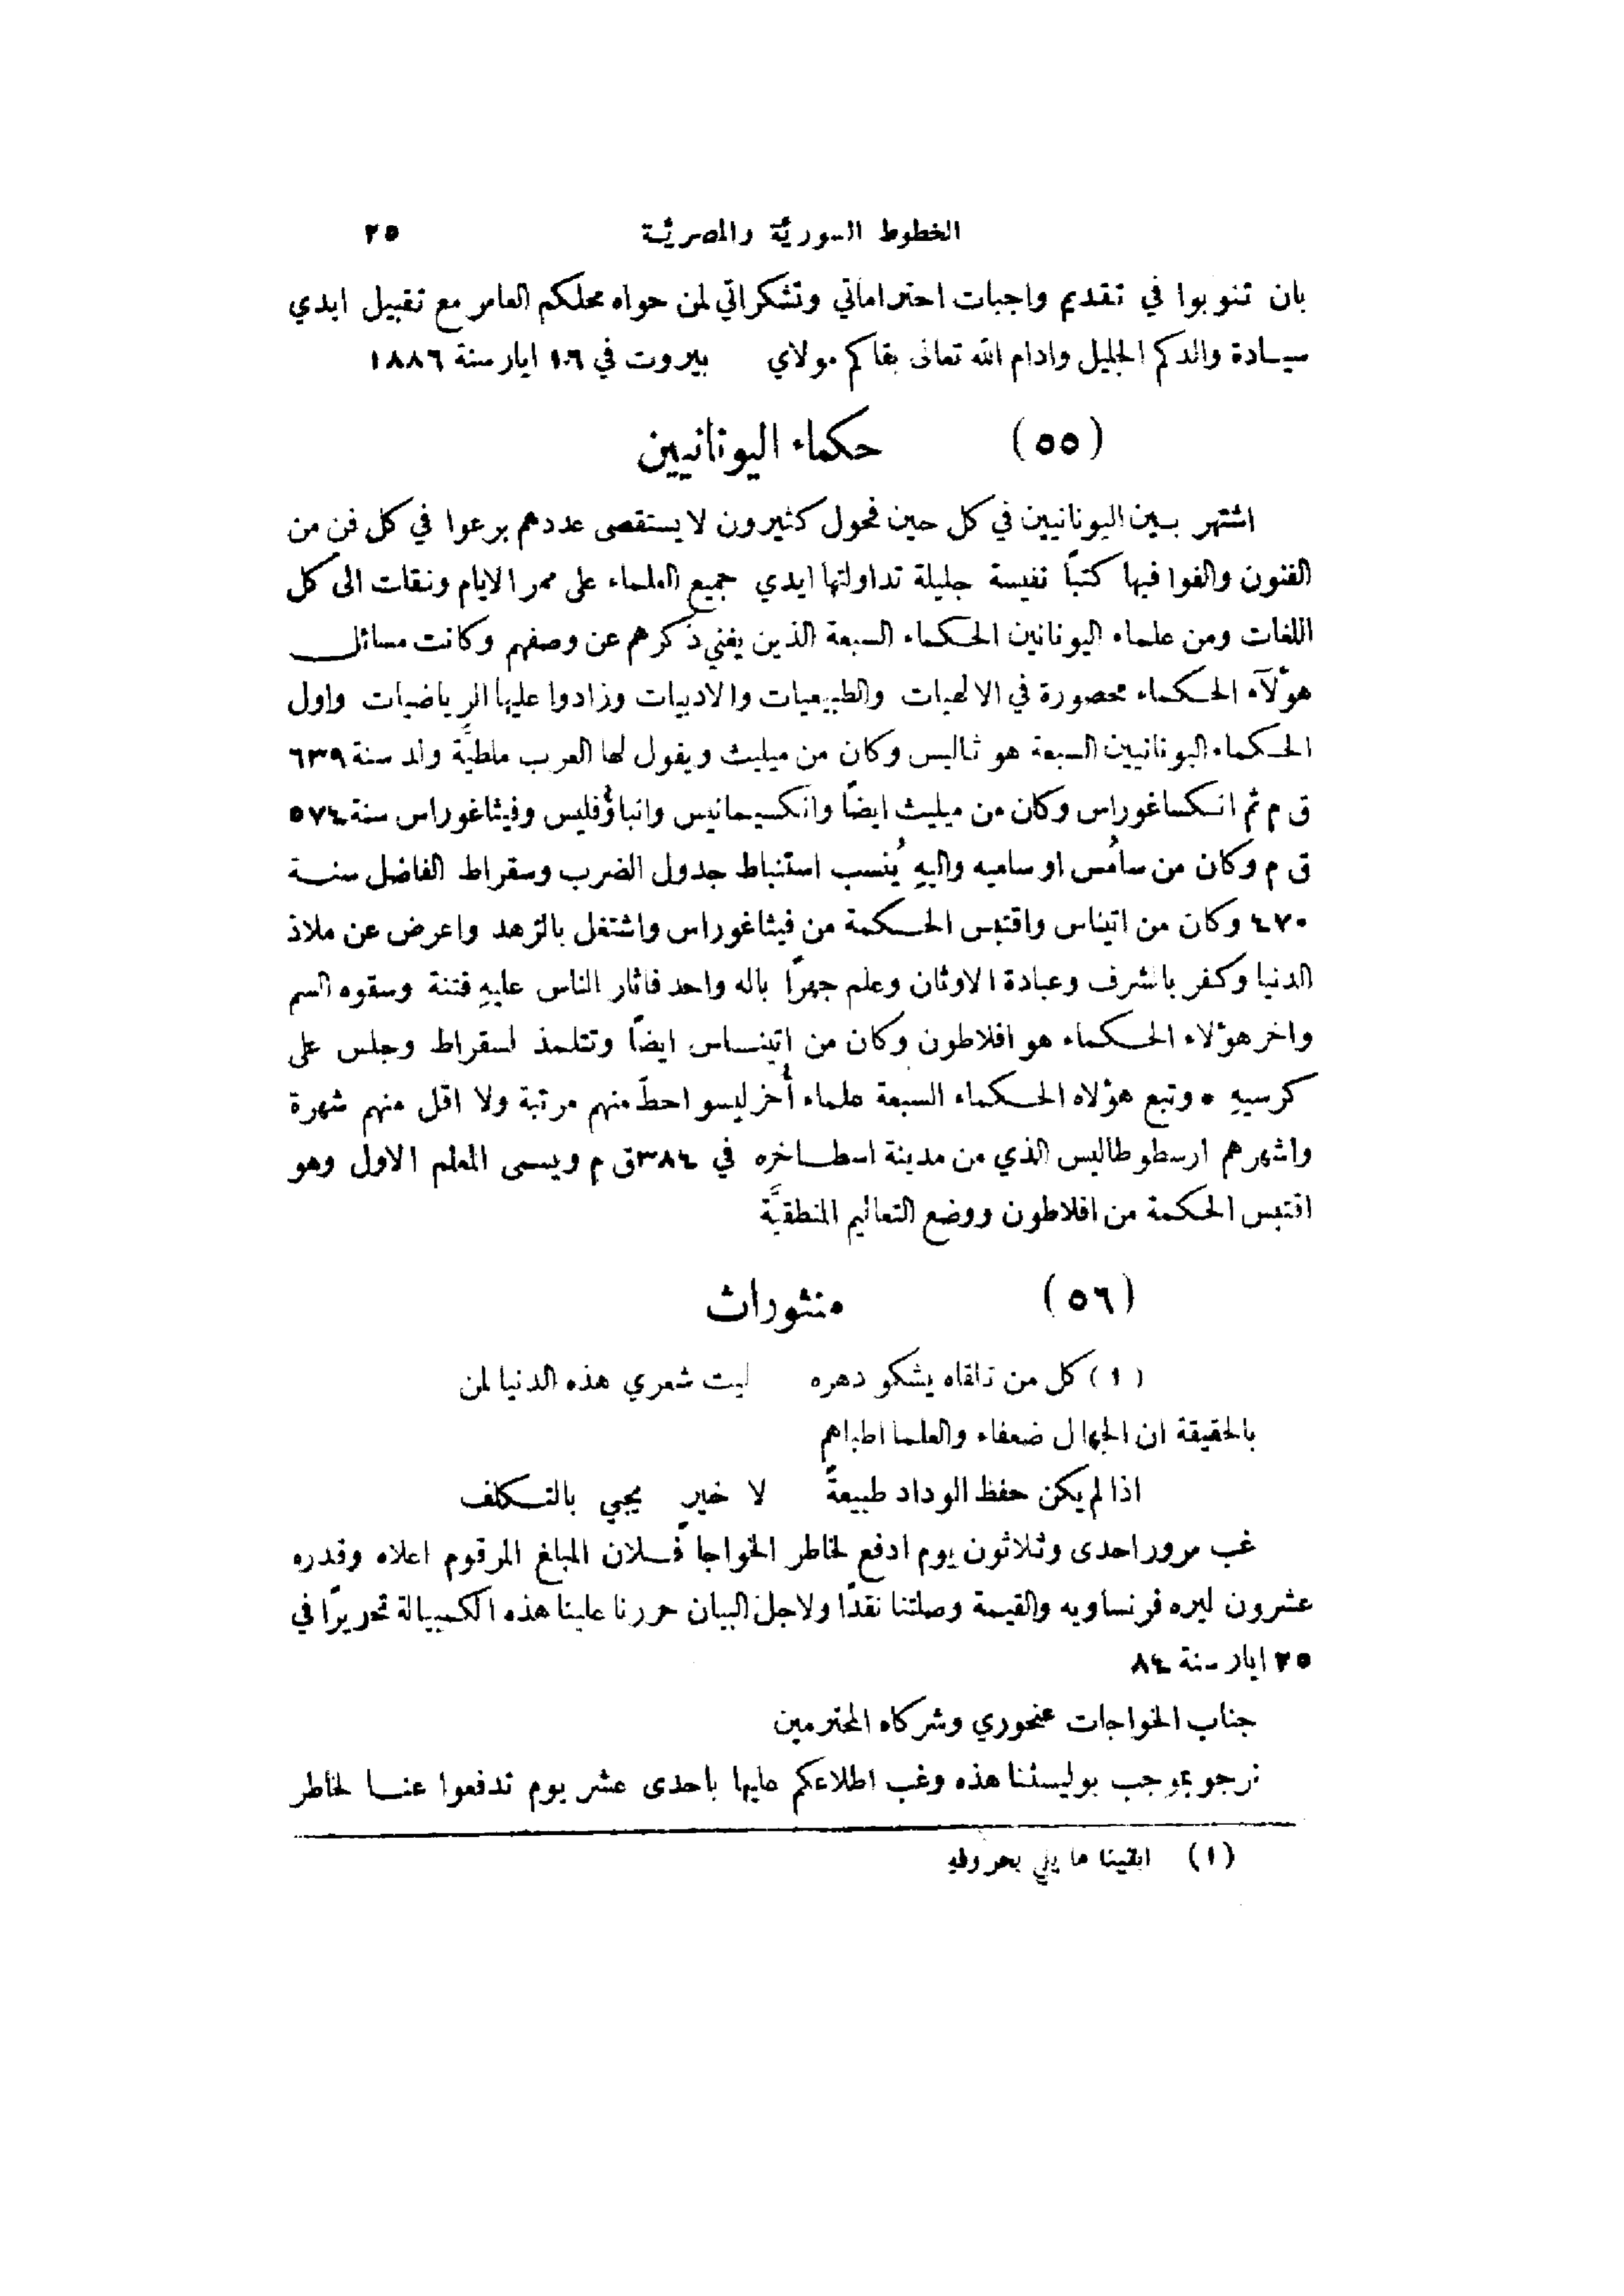 الخطوط السوريَّة والمصريَّة ٢٥
بان تنوبوا في تقديم واجبات احتراماتي وتشكراتي لمن حواه محلكم العامر مع تقبيل ايدي
سيادة والدكم الجليل وادام الله تعالى بقاكم مولاي بيروت في ١٦ ايار سنة ١٨٨٦
(٥٥) حكماء اليونانيين
اشتهر بين اليونانيين في كل حين فحول كثيرون لا يستقصى عددهم برعوا في كل فن من
الفنون والفوا فيها كتباً نفيسة جليلة تداولتها ايدي جميع العلماء على ممر الايام ونقلت الى كل
اللغات ومن علماء اليونانين الحكماء السبعة الذين يغني ذكرهم عن وصفهم وكانت مسائل
هؤلآء الحكماء محصورة في الالهيات والطبيعيات والادبيات وزادوا عليها الرياضيات واول
الحكماء اليونانيين السبعة هو ثاليس وكان من ميليث ويقول لها العرب ملطيَّة ولد سنة ٦٣٩
ق م ثم انكساغوراس وكان من ميليث ايضاً وانكسيمانيس وانباذُفليس وفيثاغوراس سنة ٥٧٤
ق م وكان من سامُس او ساميه واليهِ يُنسب استنباط جدول الضرب وسقراط الفاضل سنة
٤٧٠ وكان من اتيناس واقتبس الحكمة من فيثاغوراس واشتغل بالزهد واعرض عن ملاذ
الدنيا وكفر بالشرف وعبادة الاوثان وعلم جهراً باله واحد فاثار الناس عليهِ فتنة وسقوه السم
واخر هؤلاء الحكماء هو افلاطون وكان من اتيناس ايضاً وتتلمذ لسقراط وجلس على
كرسيهِ * وتبع هؤلاء الحكماء السبعة علماء أُخر ليسو احطَّ منهم مرتبة ولا اقل منهم شهرة
واشهرهم ارسطوطاليس الذي من مدينة اسطاخره في ٣٨٤ ق م ويسمى المعلم الاول وهو
اقتبس الحكمة من افلاطون ووضع التعاليم المنطقيَّة
(٥٦) منثورات
(١) كل من تلقاه يشكو دهره ليت شعري هذه الدنيا لمن
بالحقيقة ان الجهال ضعفاء والعلما اطباهم
اذا لم يكن حفظ الوداد طبيعةً لا خيرٍ يجي بالتكلف
غب مرور احدى وثلاثون يوم ادفع لخاطر الخواجا فلان المبلغ المرقوم اعلاه وقدره
عشرون ليره فرنساويه والقيمة وصلتنا نقداً ولاجل البيان حررنا علينا هذه الكمبيالة تحريراً في
٢٥ ايار سنة ٨٤
جناب الخواجات عنحوري وشركاه المحترمين
نرجو بموجب بوليستنا هذه وغب اطلاعكم عليها باحدى عشر يوم تدفعوا عنا لخاطر
(١) ابقينا ما يلي بحروفهِ